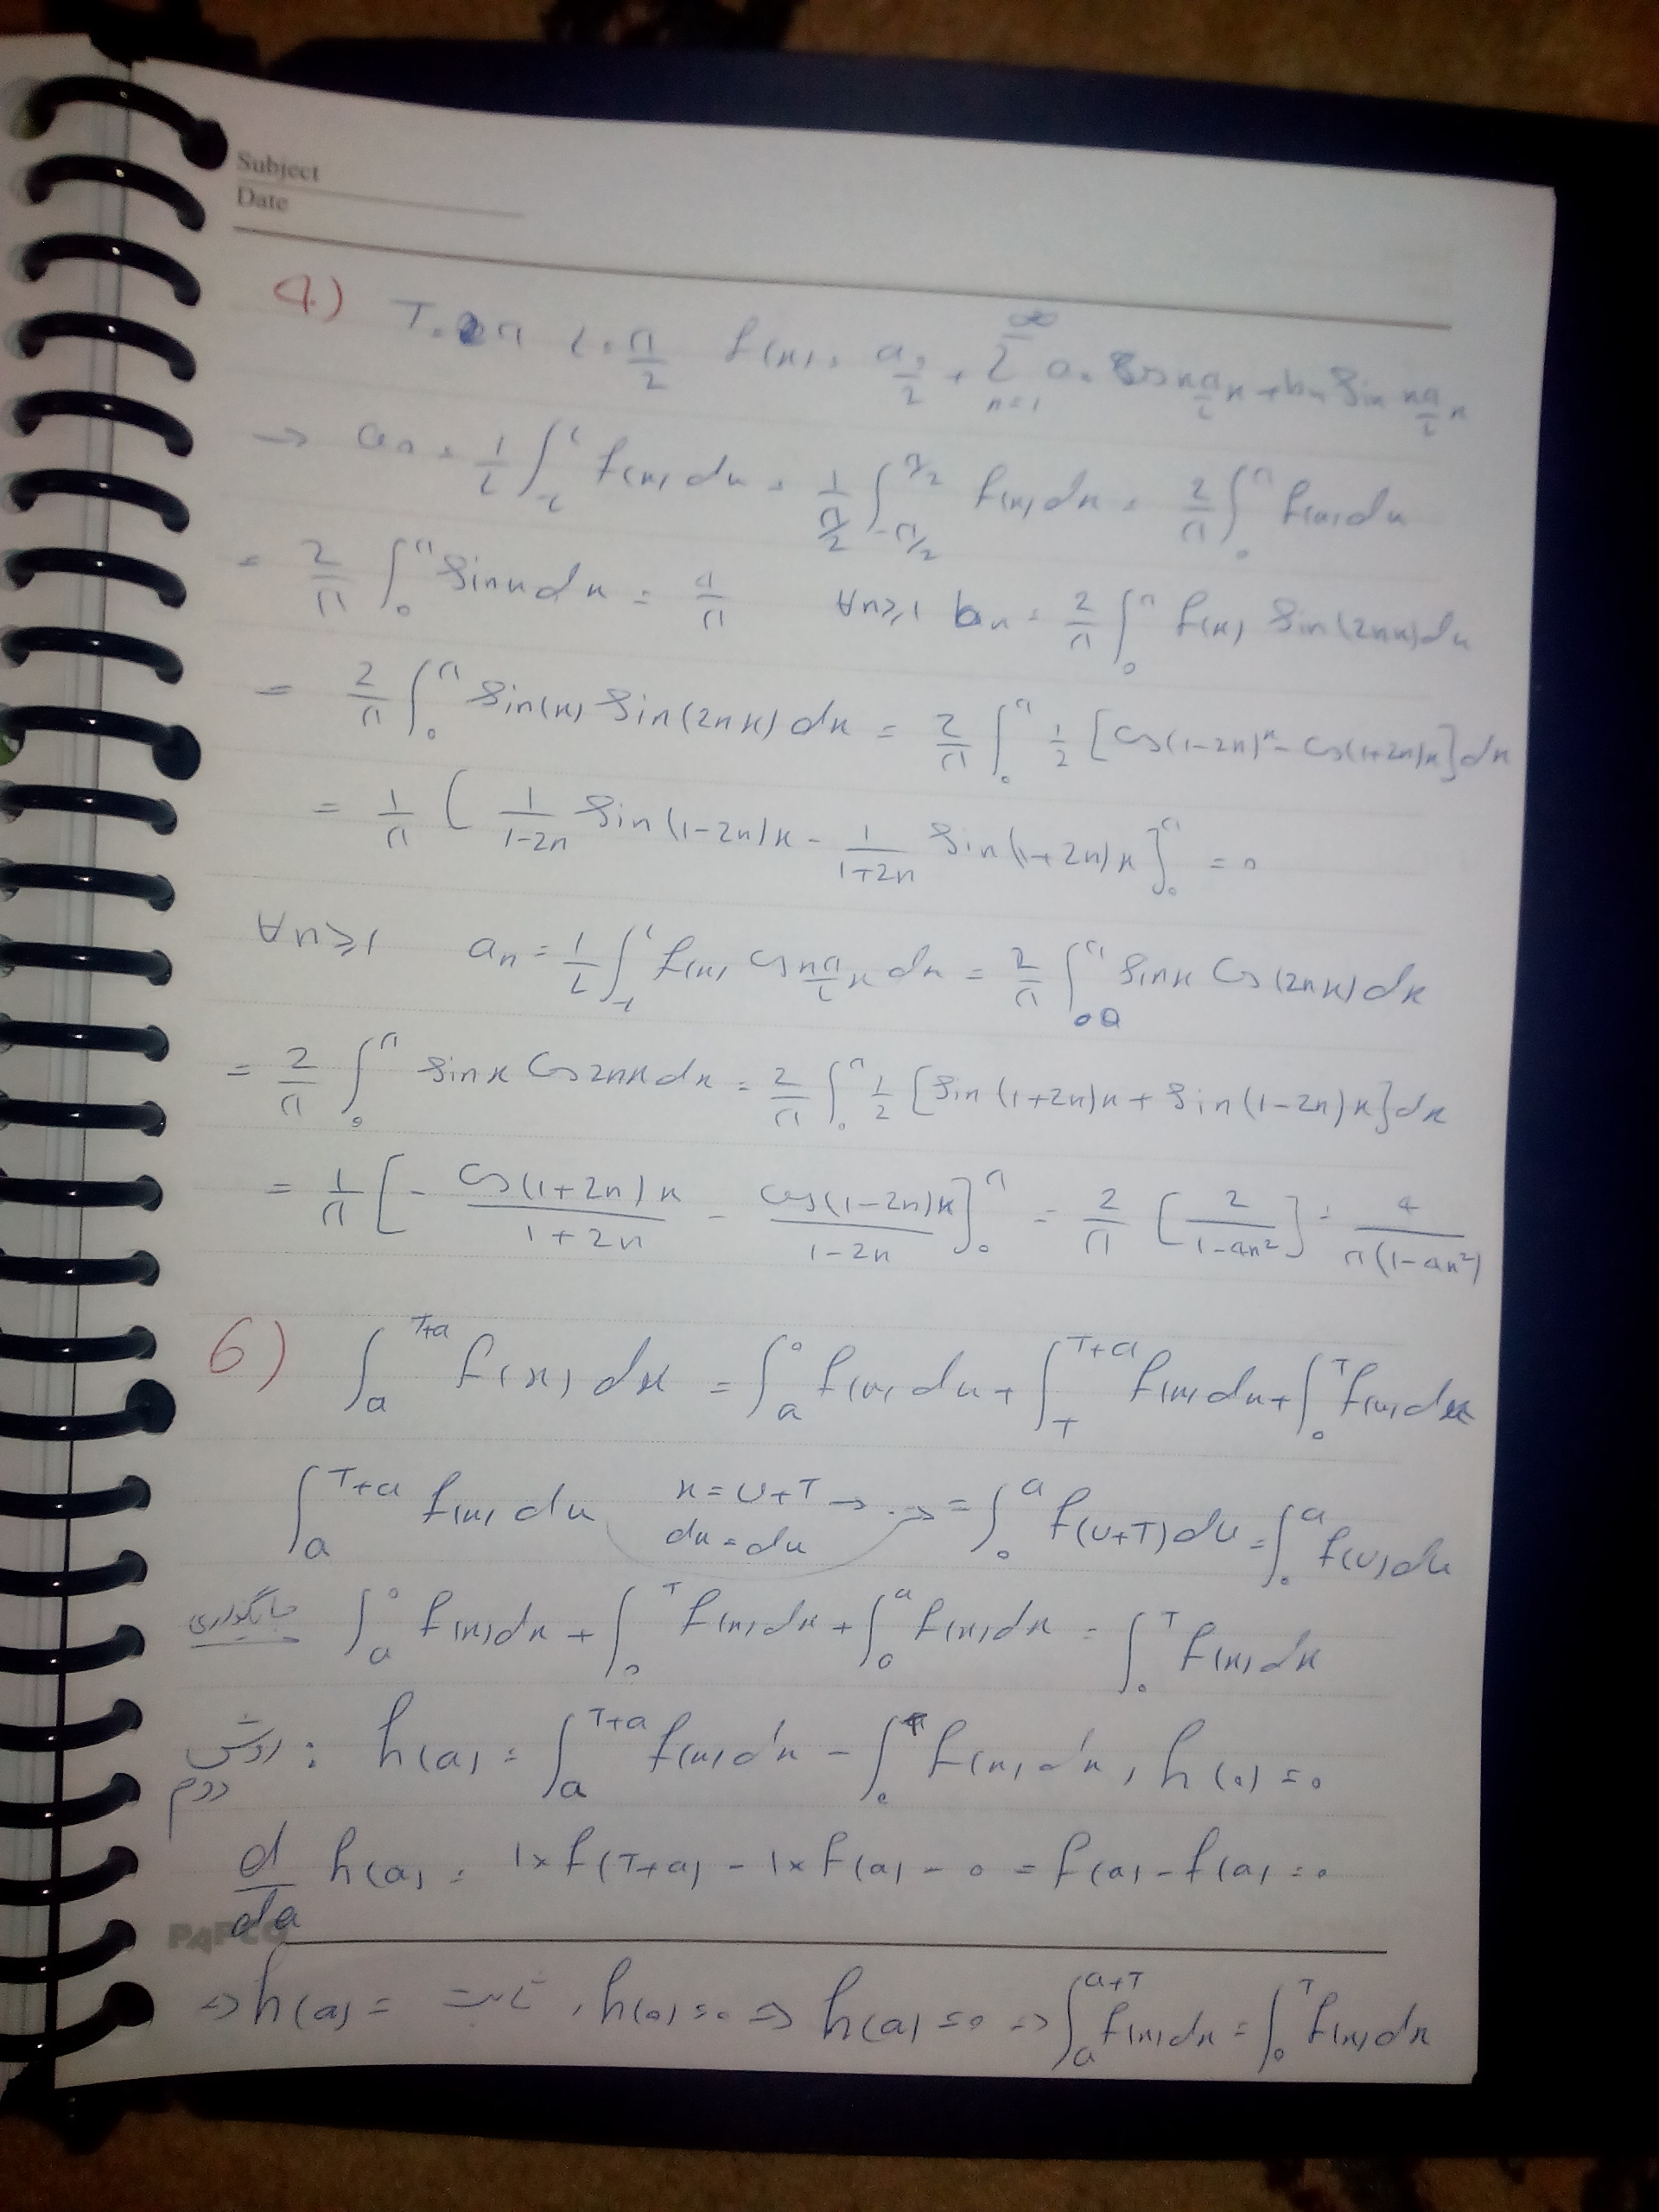 Subject
Date
4) T = π L = π/2 f(x) = a₀/2 + Σ_{n=1}^{∞} aₙ Cos nπ/L x + bₙ Sin nπ/L x
→ a₀ = 1/L ∫_{-L}^{L} f(x) dx = 1/(π/2) ∫_{-π/2}^{π/2} f(x) dx = 2/π ∫_0^π f(x) dx
= 2/π ∫_0^π Sin x dx = 4/π ∀n≥1 bₙ = 2/π ∫_0^π f(x) Sin(2nx) dx
= 2/π ∫_0^π Sin(x) Sin(2nx) dx = 2/π ∫_0^π 1/2 [Cos(1-2n)x - Cos(1+2n)x] dx
= 1/π [ 1/(1-2n) Sin(1-2n)x - 1/(1+2n) Sin(1+2n)x ]_0^π = 0
∀n≥1 aₙ = 1/L ∫_{-L}^{L} f(x) Cos nπ/L x dx = 2/π ∫_0^π Sin x Cos(2nx) dx
= 2/π ∫_0^π Sin x Cos 2nx dx = 2/π ∫_0^π 1/2 [Sin(1+2n)x + Sin(1-2n)x] dx
= 1/π [ - Cos(1+2n)x/(1+2n) - Cos(1-2n)x/(1-2n) ]_0^π = 2/π [ 2/(1-4n²) ] = 4/(π(1-4n²))
6) ∫_a^{T+a} f(x) dx = ∫_a^0 f(x) dx + ∫_T^{T+a} f(x) dx + ∫_0^T f(x) dx
∫_a^{T+a} f(x) dx x = u+T → dx = du → = ∫_0^a f(u+T) du = ∫_0^a f(u) du
جایگذاری ∫_a^0 f(x) dx + ∫_0^T f(x) dx + ∫_0^a f(x) dx = ∫_0^T f(x) dx
روش دوم : h(a) = ∫_a^{T+a} f(x) dx - ∫_0^T f(x) dx , h(0) = 0
d/da h(a) = 1×f(T+a) - 1×f(a) - 0 = f(a) - f(a) = 0
PAPCO
⇒ h(a) = ثابت , h(0) = 0 ⇒ h(a) = 0 ⇒ ∫_a^{a+T} f(x) dx = ∫_0^T f(x) dx